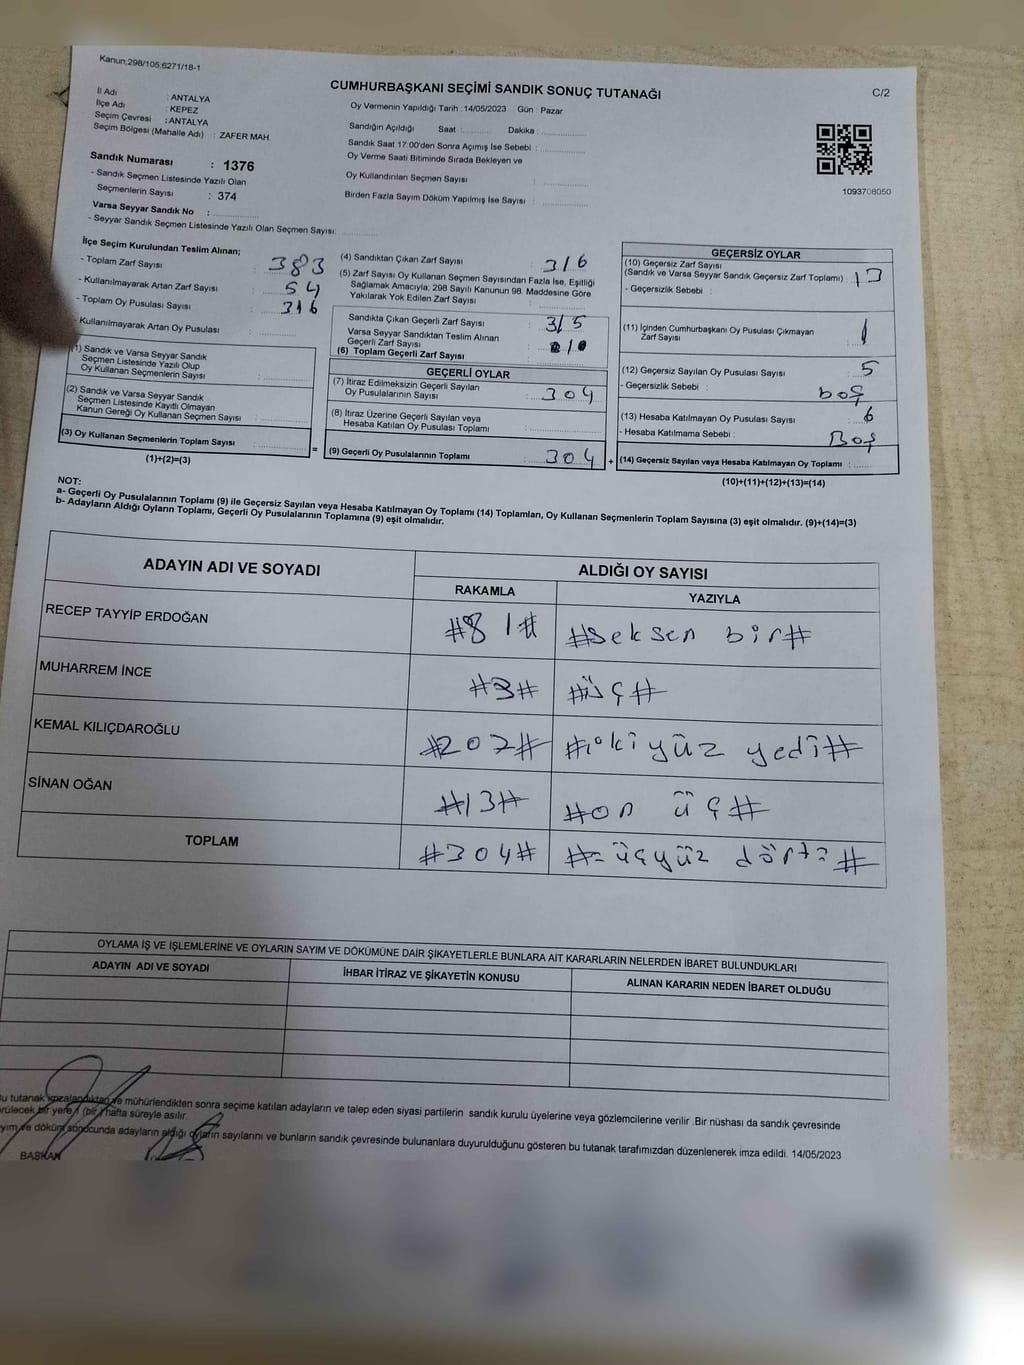 Kanun;298/105,6271/18-1
CUMHURBAŞKANI SEÇİMİ SANDIK SONUÇ TUTANAĞI
C/2
Oy Vermenin Yapıldığı Tarih : 14/05/2023 Gün : Pazar
İl Adı : ANTALYA
İlçe Adı : KEPEZ
Seçim Çevresi : ANTALYA
Seçim Bölgesi (Mahalle Adı) : ZAFER MAH.
Sandık Numarası : 1376
- Sandık Seçmen Listesinde Yazılı Olan
Seçmenlerin Sayısı : 374
Varsa Seyyar Sandık No :
- Seyyar Sandık Seçmen Listesinde Yazılı Olan Seçmen Sayısı:
Sandığın Açıldığı Saat Dakika :
Sandık Saat 17:00'den Sonra Açımış İse Sebebi :
Oy Verme Saati Bitiminde Sırada Bekleyen ve
Oy Kullandırılan Seçmen Sayısı :
Birden Fazla Sayım Döküm Yapılmış İse Sayısı :
1093708050
İlçe Seçim Kurulundan Teslim Alınan;
- Toplam Zarf Sayısı : 383
- Kullanılmayarak Artan Zarf Sayısı : 54
- Toplam Oy Pusulası Sayısı : 316
- Kullanılmayarak Artan Oy Pusulası :
(1) Sandık ve Varsa Seyyar Sandık
Seçmen Listesinde Yazılı Olup
Oy Kullanan Seçmenlerin Sayısı :
(2) Sandık ve Varsa Seyyar Sandık
Seçmen Listesinde Kayıtlı Olmayan
Kanun Gereği Oy Kullanan Seçmen Sayısı :
(3) Oy Kullanan Seçmenlerin Toplam Sayısı :
(1)+(2)=(3)
=
(4) Sandıktan Çıkan Zarf Sayısı : 316
(5) Zarf Sayısı Oy Kullanan Seçmen Sayısından Fazla İse, Eşitliği
Sağlamak Amacıyla; 298 Sayılı Kanunun 98. Maddesine Göre
Yakılarak Yok Edilen Zarf Sayısı :
Sandıkta Çıkan Geçerli Zarf Sayısı : 315
Varsa Seyyar Sandıktan Teslim Alınan
Geçerli Zarf Sayısı :
(6) Toplam Geçerli Zarf Sayısı
GEÇERLİ OYLAR
(7) İtiraz Edilmeksizin Geçerli Sayılan
Oy Pusulalarının Sayısı : 304
(8) İtiraz Üzerine Geçerli Sayılan veya
Hesaba Katılan Oy Pusulası Toplamı :
(9) Geçerli Oy Pusulalarının Toplamı : 304
+
GEÇERSİZ OYLAR
(10) Geçersiz Zarf Sayısı
(Sandık ve Varsa Seyyar Sandık Geçersiz Zarf Toplamı) : 13
- Geçersizlik Sebebi :
(11) İçinden Cumhurbaşkanı Oy Pusulası Çıkmayan
Zarf Sayısı : 1
(12) Geçersiz Sayılan Oy Pusulası Sayısı : 5
- Geçersizlik Sebebi : boş
(13) Hesaba Katılmayan Oy Pusulası Sayısı : 6
- Hesaba Katılmama Sebebi : Boş
(14) Geçersiz Sayılan veya Hesaba Katılmayan Oy Toplamı :
(10)+(11)+(12)+(13)=(14)
NOT:
a- Geçerli Oy Pusulalarının Toplamı (9) ile Geçersiz Sayılan veya Hesaba Katılmayan Oy Toplamı (14) Toplamları, Oy Kullanan Seçmenlerin Toplam Sayısına (3) eşit olmalıdır. (9)+(14)=(3)
b- Adayların Aldığı Oyların Toplamı, Geçerli Oy Pusulalarının Toplamına (9) eşit olmalıdır.
ADAYIN ADI VE SOYADI
ALDIĞI OY SAYISI
RAKAMLA YAZIYLA
RECEP TAYYİP ERDOĞAN #81# #seksen bir#
MUHARREM İNCE #3# #üç#
KEMAL KILIÇDAROĞLU #207# #iki yüz yedi#
SİNAN OĞAN #13# #on üç#
TOPLAM #304# # üçyüz dört #
OYLAMA İŞ VE İŞLEMLERİNE VE OYLARIN SAYIM VE DÖKÜMÜNE DAİR ŞİKAYETLERLE BUNLARA AİT KARARLARIN NELERDEN İBARET BULUNDUKLARI
ADAYIN ADI VE SOYADI İHBAR İTİRAZ VE ŞİKAYETİN KONUSU ALINAN KARARIN NEDEN İBARET OLDUĞU
Bu tutanak imzalandıktan ve mühürlendikten sonra seçime katılan adayların ve talep eden siyasi partilerin sandık kurulu üyelerine veya gözlemcilerine verilir .Bir nüshası da sandık çevresinde
görülecek bir yere 1 (bir) hafta süreyle asılır.
sayım ve döküm sonucunda adayların aldığı oyların sayılarını ve bunların sandık çevresinde bulunanlara duyurulduğunu gösteren bu tutanak tarafımızdan düzenlenerek imza edildi. 14/05/2023
BAŞKAN